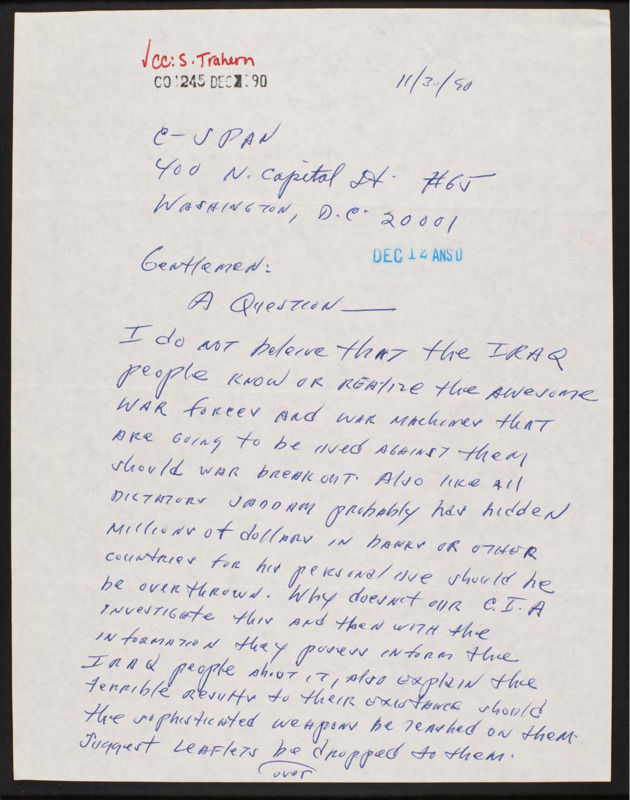 √cc: S. Trahern
CO 1245 DEC 7. 90
11/30/90
C-SPAN
400 N. Capital St. #65
WASHINGTON, D.C. 20001
DEC 12 ANS'D
Gentlemen:
A Question —
I do NOT beleive that the IRAQ
people KNOW OR REAlize the AWesome
WAR forces AND WAR MAchines that
ARE GOING to be used AGAINST them
should WAR breAK out. Also like All
DICTATORS SADDAM probably has hidden
Millions of dollars IN banks OR OTHER
countries for his personal use should he
be overthrown. Why doesn't our C.I.A
INVestigate this AND then with the
INformation they posess inform the
IRAQ people About it, also explain the
terrible results to their existance should
the sophisticated weapons be leashed on them.
Suggest LEAflets be dropped to them.
over